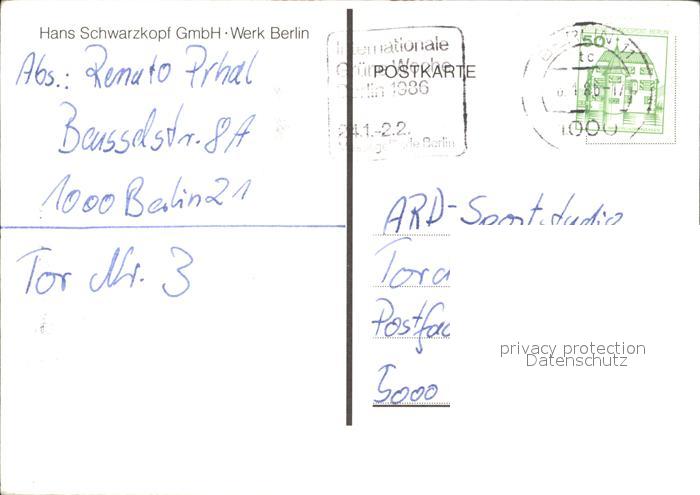 Hans Schwarzkopf GmbH · Werk Berlin
Abs.: Renato Prhal
Beusselstr. 8A
1000 Berlin 21
Tor Nr. 3
Internationale
Grüne Woche
Berlin 1986
24.1.-2.2.
Berlin
POSTKARTE
50
BERLIN 11
tc
1000
ARD-Sportstudio
Postfac
5000
privacy protection
Datenschutz